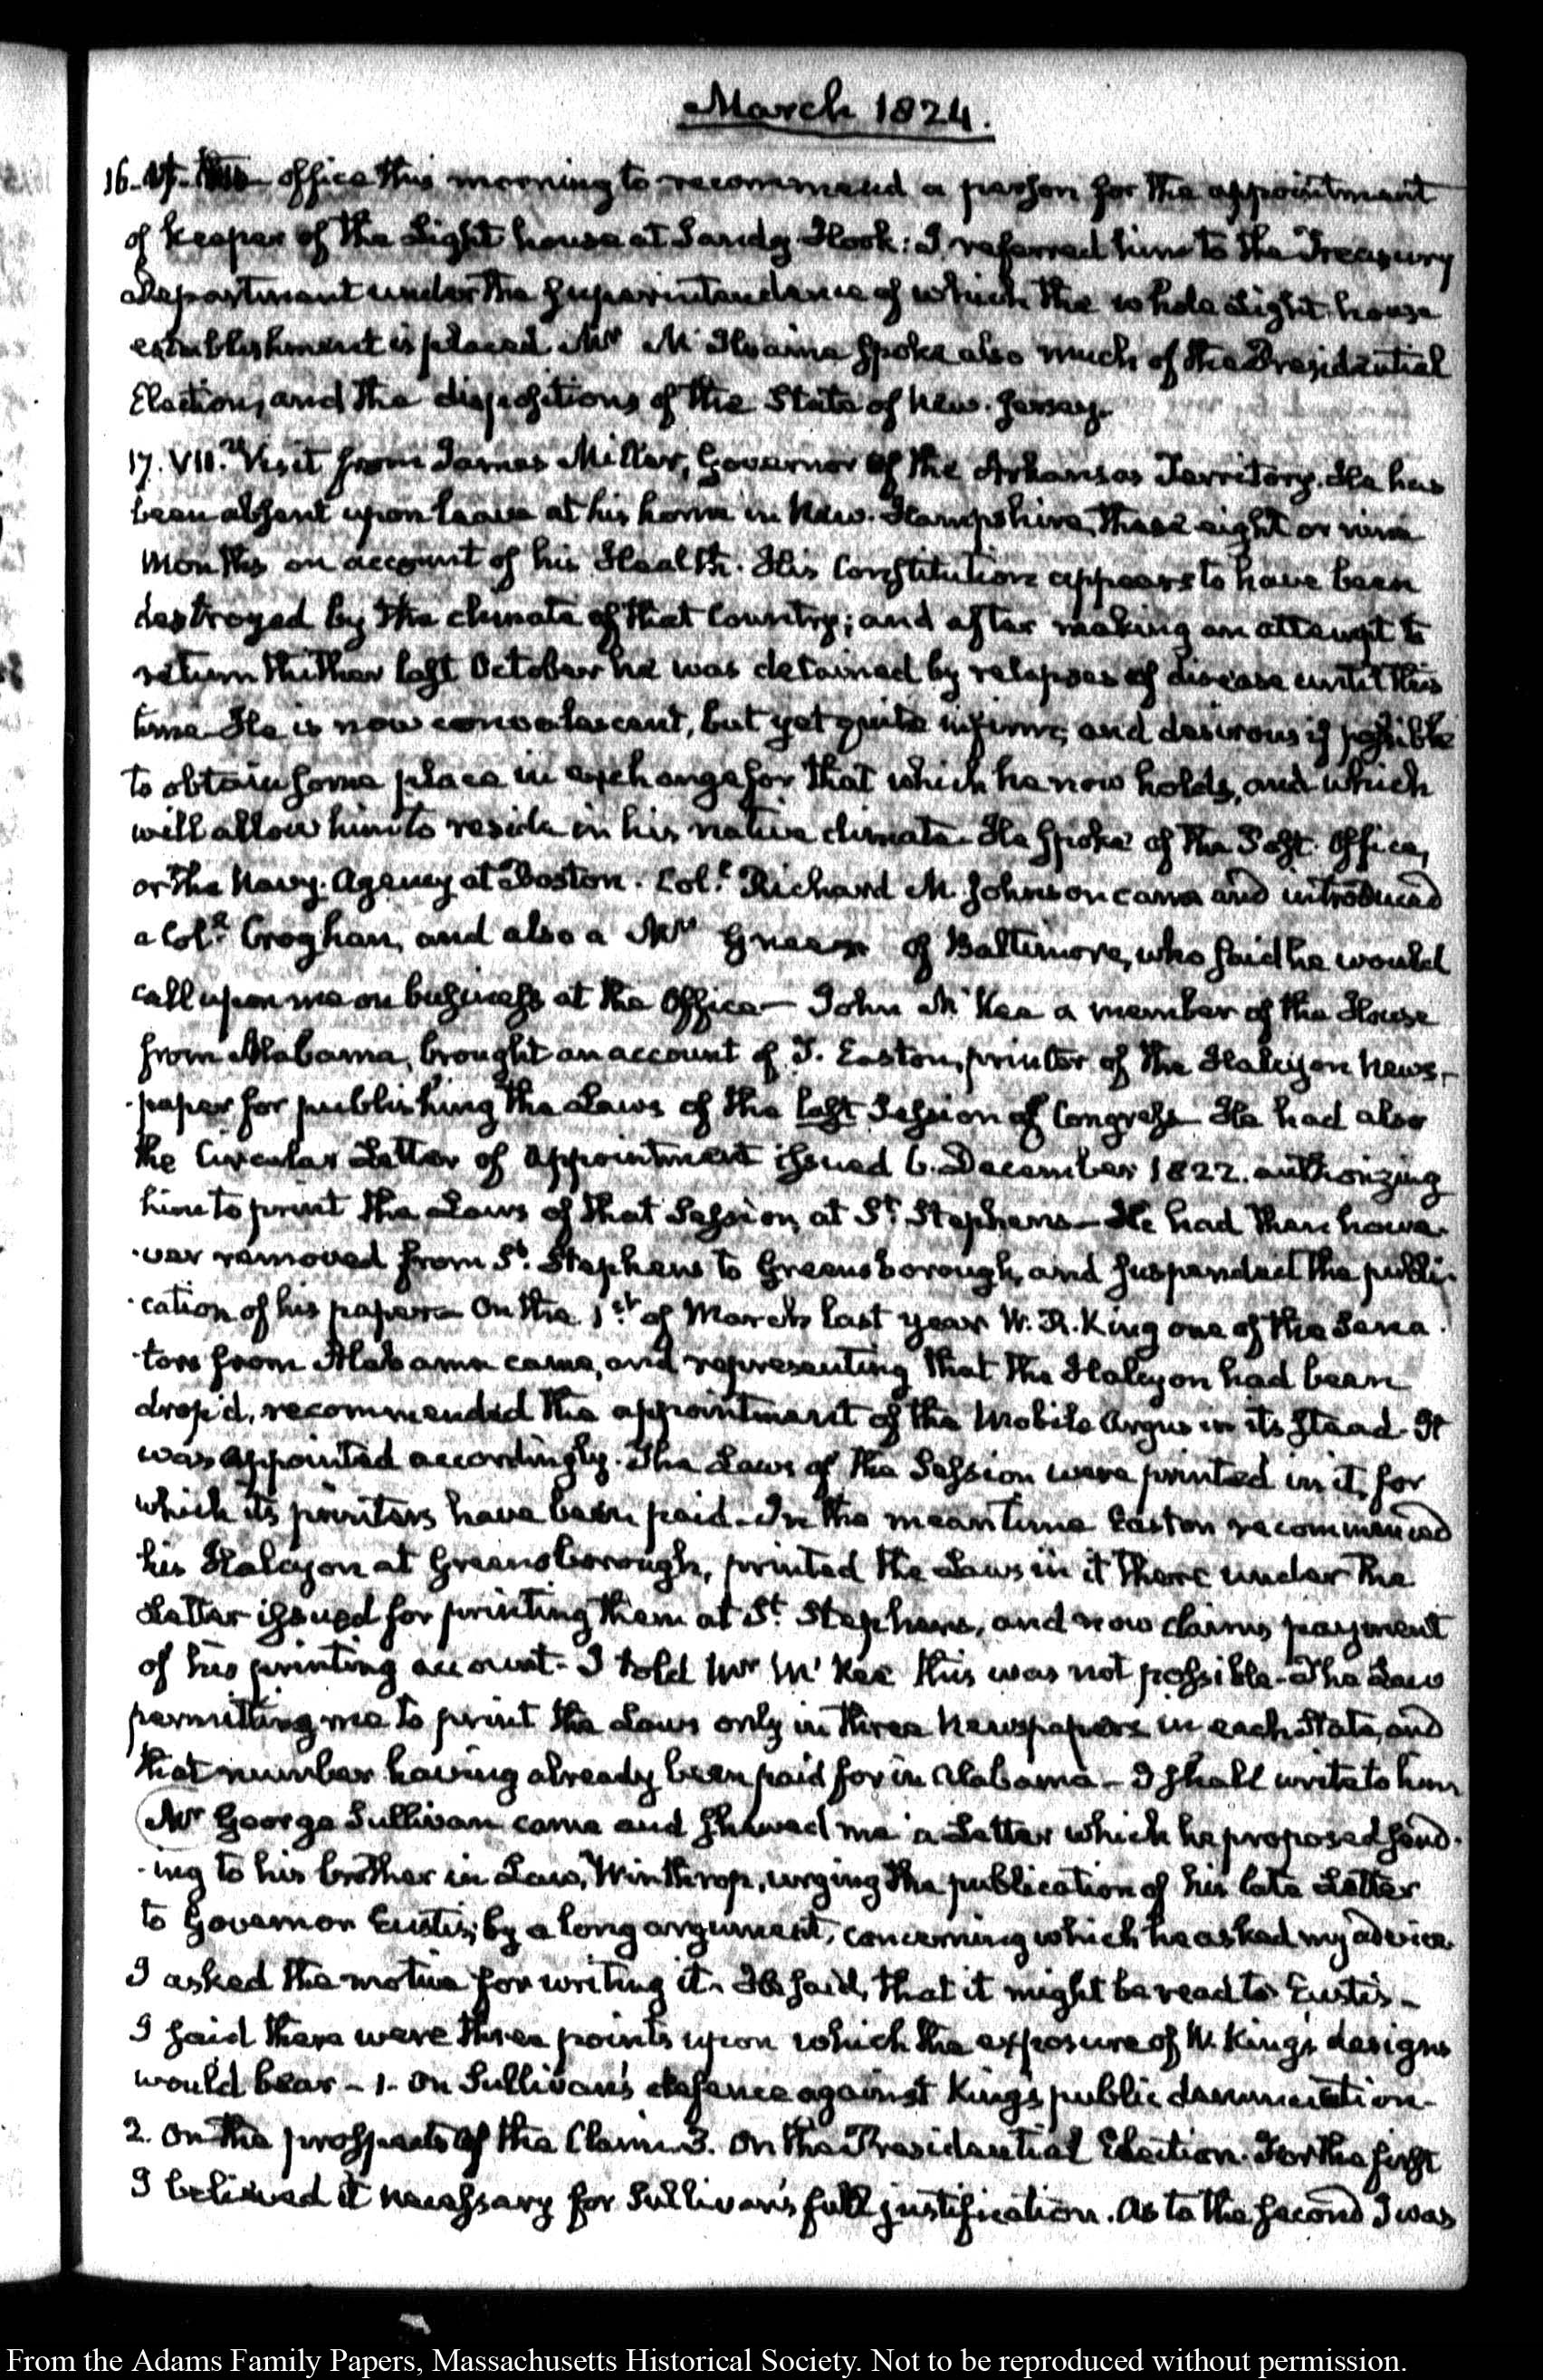 March 1824.
16. At the office this morning to recommend a person for the appointment
of keeper of the Light house at Sandy Hook: I referred him to the Treasury
Department under the superintendence of which the whole Light-house
establishment is placed. Mr. McIlvaine spoke also much of the Presidential
Election, and the dispositions of the State of New-Jersey.
17. VII. Visit from James Miller, Governor of the Arkansas Territory. He has
been absent upon leave at his home in New-Hampshire, these eight or nine
months on account of his Health. His Constitution appears to have been
destroyed by the climate of that Country; and after making an attempt to
return thither last October he was detained by relapses of disease until this
time. He is now convalescent, but yet quite infirm, and desirous if possible
to obtain some place in exchange for that which he now holds, and which
will allow him to reside in his native climate. He spoke of the Post-Office,
or the Navy-Agency at Boston. Coll. Richard M. Johnson came and introduced
a Coll. Croghan, and also a Mr. Green of Baltimore, who said he would
call upon me on business at the Office— John McKee a member of the House
from Alabama, brought an account of T. Easton, printer of the Halcyon News-
-paper for publishing the Laws of the last Session of Congress— He had also
the Circular Letter of appointment issued 6. December 1822. authorizing
him to print the Laws of that Session, at St. Stephens— He had then howe-
-ver removed from St. Stephens to Greensborough, and suspended the publi-
-cation of his paper— On the 1st. of March last year W. R. King one of the Sena-
-tors from Alabama came, and representing that the Halcyon had been
drop'd, recommended the appointment of the Mobile Argus in its stead. It
was appointed accordingly. The Laws of the Session were printed in it, for
which its printers have been paid. In the meantime Easton recommenced
his Halcyon at Greensborough, printed the Laws in it there under the
Letter issued for printing them at St. Stephens, and now claims payment
of his printing account. I told Mr. McKee this was not possible. The Law
permitting me to print the Laws only in three Newspapers in each State, and
that number having already been paid for in Alabama— I shall write to him
Mr. George Sullivan came and shewed me a Letter which he proposed send-
-ing to his brother in Law, Winthrop, urging the publication of his late Letter
to Governor Eustis, by a long argument, concerning which he asked my advice.
I asked the motive for writing it. He said, that it might be read to Eustis—
I said there were three points upon which the exposure of W. King's designs
would bear— 1. On Sullivan's defence against King's public denunciation.
2. On the prospects of the Claim. 3. On the Presidential Election. For the first
I believed it necessary for Sullivan's full justification. As to the second I was
From the Adams Family Papers, Massachusetts Historical Society. Not to be reproduced without permission.